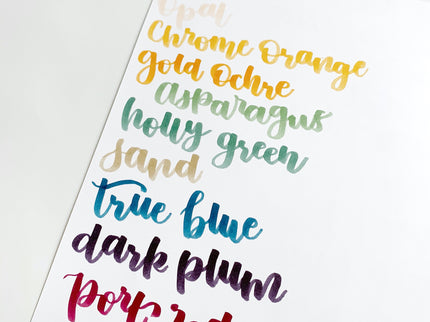 Opal
Chrome Orange
gold Ochre
asparagus
holly green
sand
true blue
dark plum
Port red